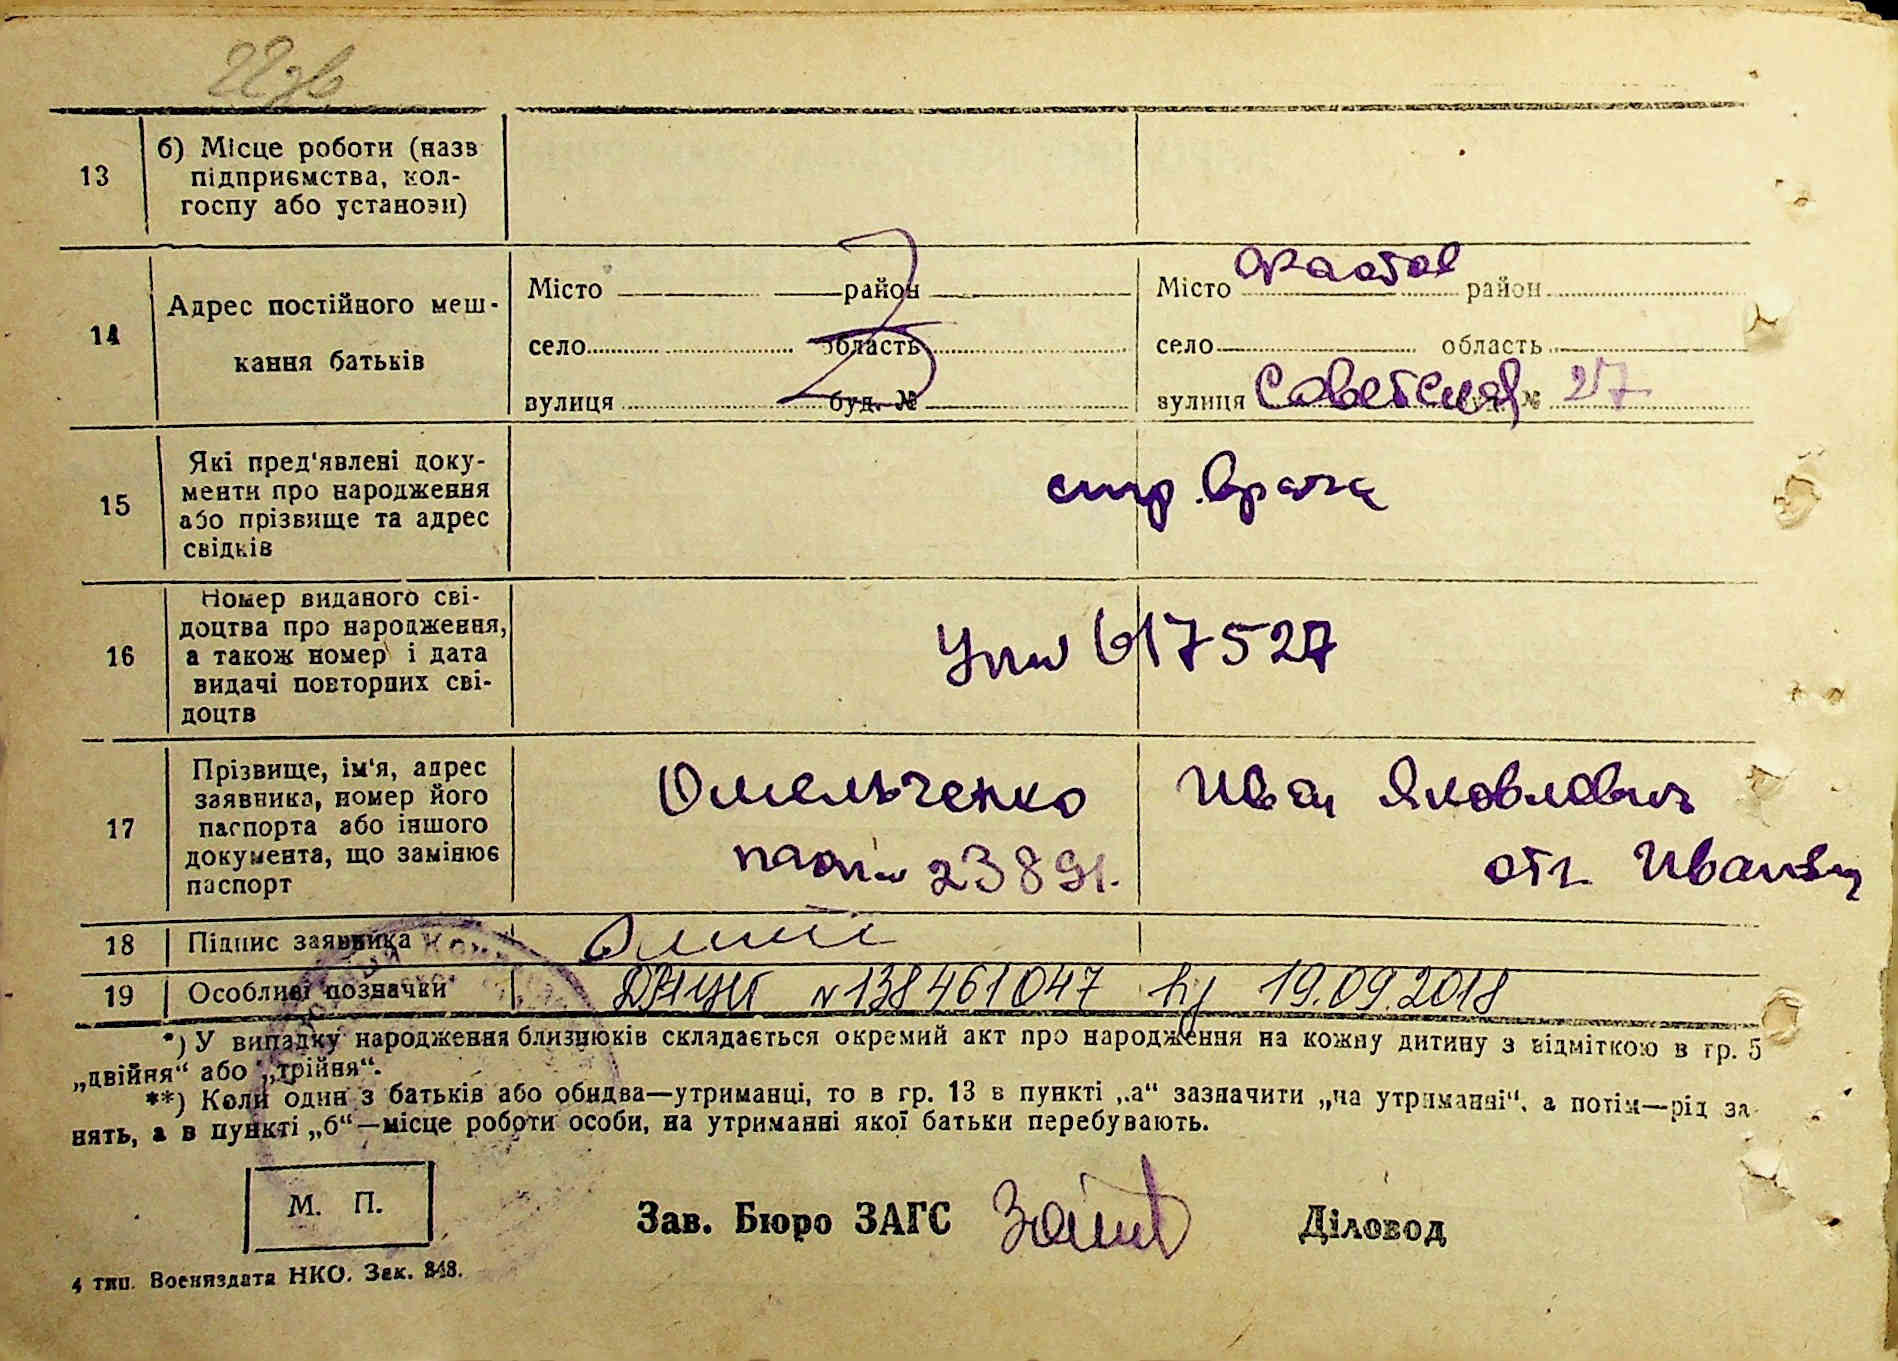 22зв
13
б) Місце роботи (назв
підприємства, кол-
госпу або установи)
14
Адрес постійного меш-
кання батьків
Місто район
село область
вулиця буд. №
Місто Фастов район
село область
вулиця Советская № 27
15
Які пред'явлені доку-
менти про народження
або прізвище та адрес
свідків
спр. врача
16
Номер виданого сві-
доцтва про народження,
а також номер і дата
видачі повторних сві-
доцтв
617527
17
Прізвище, ім'я, адрес
заявника, номер його
паспорта або іншого
документа, що замінює
паспорт
Омельченко Иван Яковлевич
23891.
18 Підпис заявника
19 Особливі позначки
ДРАЦСГ №138461047 19.09.2018
*) У випадку народження близнюків складається окремий акт про народження на кожну дитину з відміткою в гр. 5
„двійня“ або „трійня“.
**) Коли один з батьків або обидва—утриманці, то в гр. 13 в пункті „а“ зазначити „на утриманні“, а потім—рід за-
нять, а в пункті „б“—місце роботи особи, на утриманні якої батьки перебувають.
М. П.
Зав. Бюро ЗАГС
Діловод
4 тип. Воениздата НКО. Зак. 848.